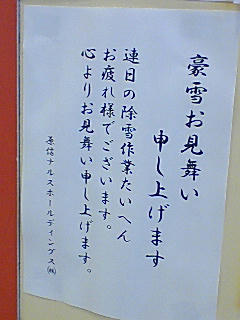 豪雪お見舞い
申し上げます
連日の除雪作業たいへん
お疲れ様でございます。
心よりお見舞い申し上げます。
原信ナルスホールディングス㈱